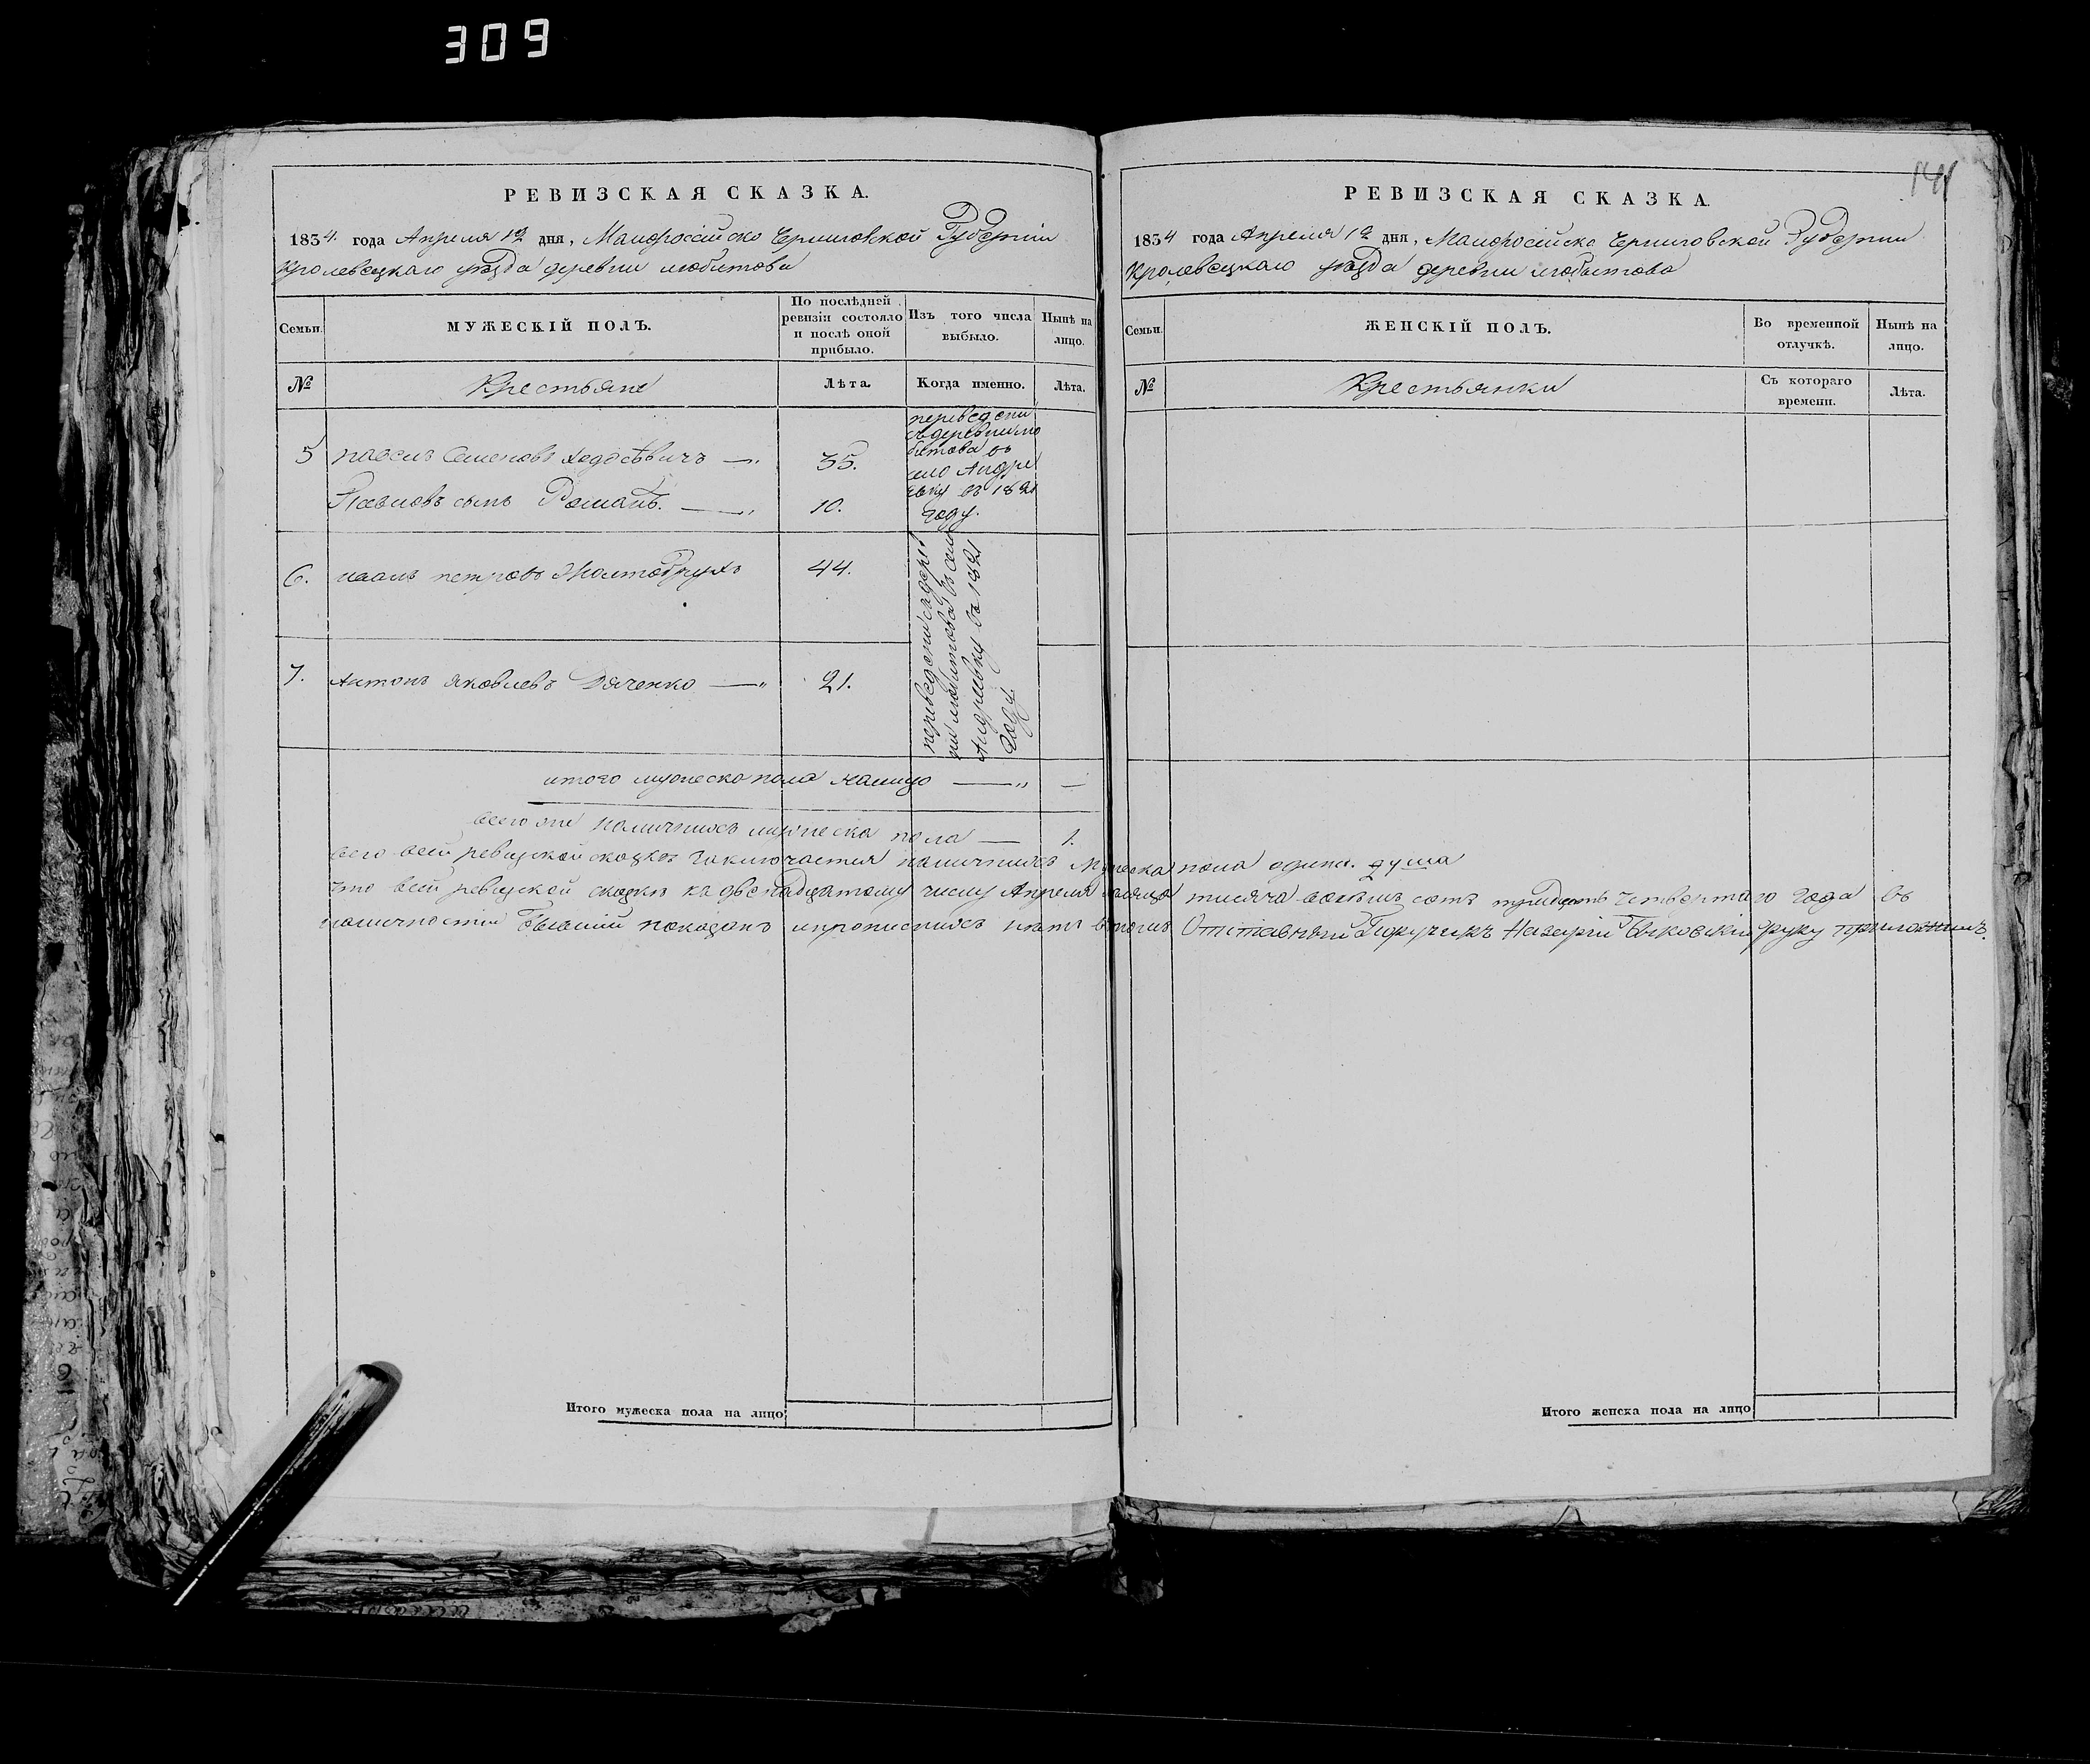 309
141
РЕВИЗСКАЯ СКАЗКА.
1834. года Апреля 12 дня, Малоросійско Черниговской Губерніи
Кролевецкаго уезда деревни любитова
Семьи.
МУЖЕСКІЙ ПОЛЪ.
По послѣдней ревизіи состояло и послѣ оной прибыло.
Изъ того числа выбыло.
Нынѣ на лицо.
№
Крестьяне
Лѣта.
Когда именно.
Лѣта.
5 павелъ Семеновъ 35.
Павловъ сынъ Романъ. 10.
переведены
съ деревни лю
битова въ
село Андре
евку въ 1821
году.
6. петровъ Жолтобрухъ 44.
7. Антонъ Яковлевъ Дяченко 21.
переведены съ дерев
ни любитова въ село
Андреевку въ 1821
году.
итого мужеско пола налицо —
всего же наличныхъ мужеска пола — 1.
всего всей ревизской сказке заключается наличныхъ Мужеска пола одна. душа
что всей ревизской сказке къ двенадцатому числу Апреля месяца тисяча восемъ сотъ тридцать четвертаго года въ
наличности бывший показанъ и прописныхъ нетъ въ томъ Отставный Поручикъ Назарій Быковскій руку приложилъ.
Итого мужеска пола на лицо
РЕВИЗСКАЯ СКАЗКА.
1834 года Апреля 12 дня, Малоросійско Черниговской Губернии
Кролевецкаго уезда деревни любитова
Семьи.
ЖЕНСКІЙ ПОЛЪ.
Во временной отлучкѣ.
Нынѣ на лицо.
№
Крестьянки
Съ котораго времени.
Лѣта.
Итого женска пола на лицо